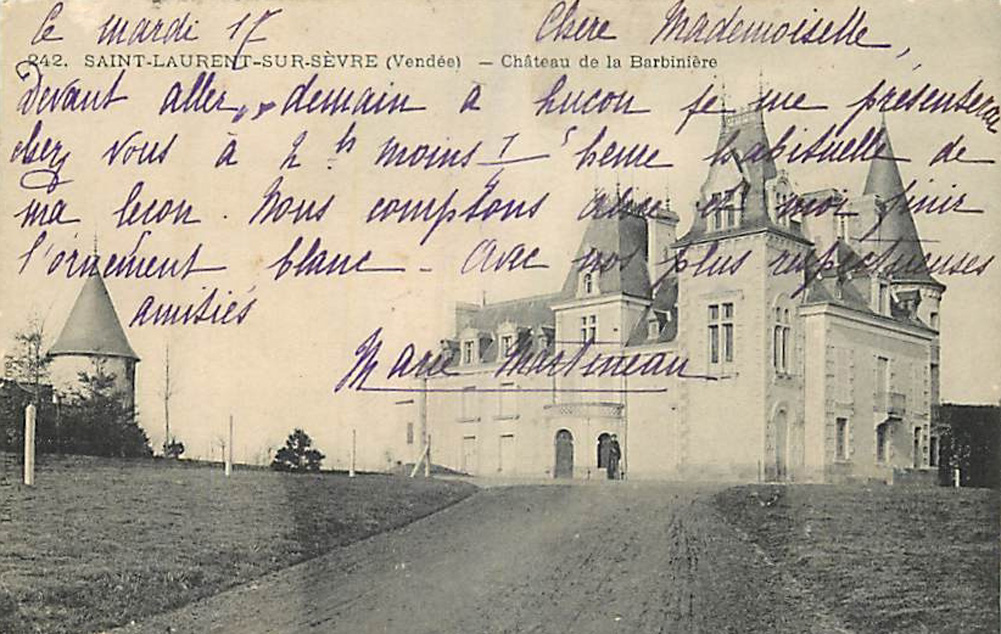 Ce mardi 17 Chère Mademoiselle,
242. SAINT-LAURENT-SUR-SÈVRE (Vendée) — Château de la Barbinière
Devant aller, demain à Luçon je me présenterai
chez vous à 2 hs moins 1 heure habituelle de
ma leçon. Nous comptons et moi finir
l'ornement blanc - Avec mes plus respectueuses
amitiés
Marie Martineau